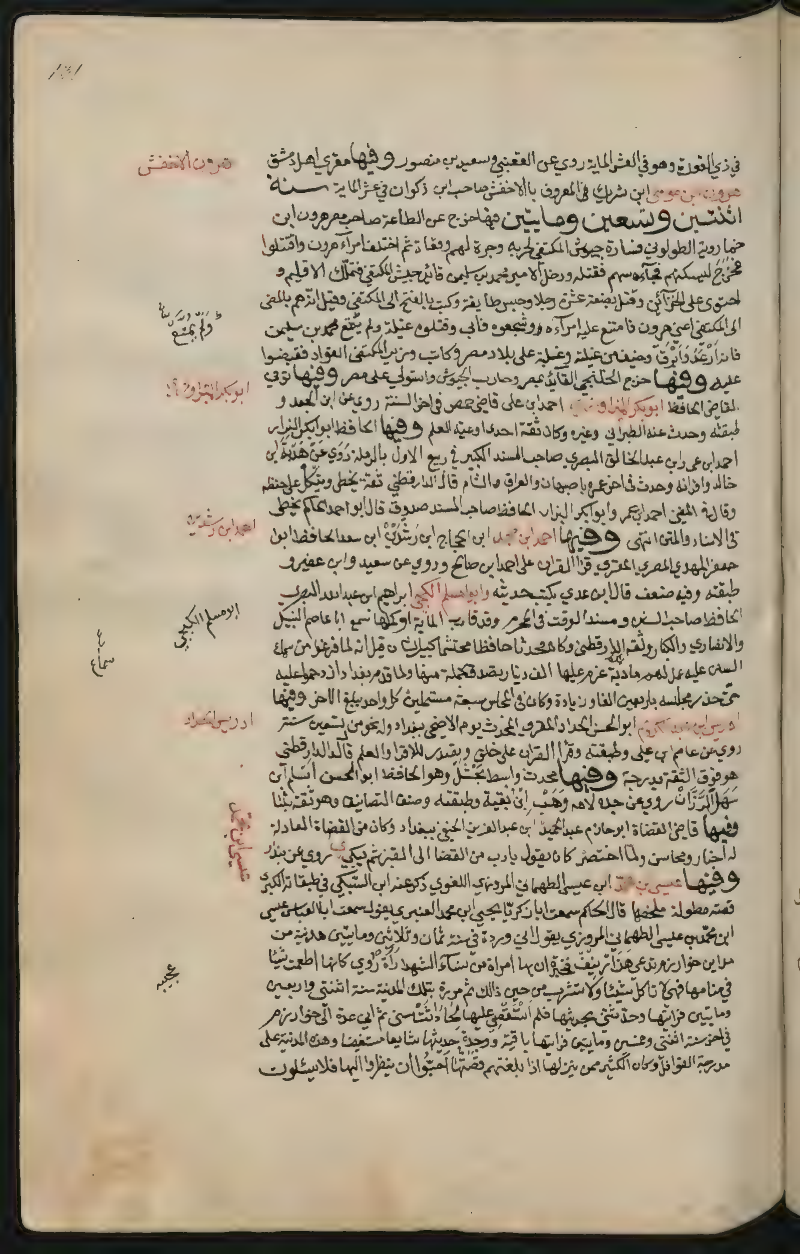 في ذي القعدة وهو في العشر الماية روي عن القعنبي وسعيد بن منصور وفيها مقري اهل دمشق
هرون الاخفش
هرون بن موسى ابن شريك المعروف بالاخفش صاحب ابن ذكوان في عشر الماية سنة
اثنتين وتسعين ومايتين فيها خرج عن الطاعة صاحب مصر هرون ابن
خمارويه الطولوني فسارة جيوش المكتفي لحربه وجرة لهم وقعاة ثم اختلف امرآء هرون واقتتلوا
فخرج ليسكنهم فجآءه سهم فقتله ودخل الامير محمد بن سليمن قائد جيش المكتفي فتملك الاقليم و
احتوى على الخزآئن وقتل بضعة عشرة رجلا وحبس طايفة وكتب بالفتح الى المكتفي وقيل انه هم بالمضي
الى المكتفي اعني هرون فامتنع عليه امرآءه وشجعوه فابى وقتلوه غيلة ولم يمتع محمد بن سليمن
فانه ارعد وابرق وخيف من غيلته وغلبته على بلاد مصر وكاتب وزير المكتفي القواد فقبضوا
عليه وفيها خرج الخلنجي القائد بمصر وحارب الجيوش واستولي على مصر وفيها توفي
ابو بكر المروزي
القاضي الحافظ ابو بكر المروزي احمد ابن على قاضي حمص في اخر السنة روي عن ابن الجعد و
طبقته وحدث عنه الطبراني وغيره وكان ثقة احد اوعية العلم وفيها الحافظ ابو بكر البزار
احمد ابن عمر ابن عبد الخالق البصري صاحب المسند الكبير في ربيع الاول بالرملة روي عن هدبة ابن
خالد واقرانه وحدث في اخر عمره باصبهان والعراق والشام قال الدارقطني ثقة يخطي ويتكل على حفظه
وقال في المغني احمد ابن عمر وابو بكر البزار الحافظ صاحب المسند صدوق قال ابو احمد الحاكم يخطي
احمد ابن رشدين
في الاسناد والمتن انتهى وفيها احمد ابن محمد ابن الحجاج ابن رشدين ابن سعد الحافظ ابو
جعفر المهدي المصري المقري قرا القران على احمد ابن صالح وروي عن سعيد وابن عفير و
طبقته وفيه ضعف قال ابن عدي يكتب حديثه وابو مسلم الكجي ابراهيم ابن عبد الله البصري
ابو مسلم الكجي
الحافظ صاحب السنن ومسند الوقت في المحرم وقد قارب الماية او كملها سمع ابا عاصم النبيل
والانصاري والكبار وثقه الدارقطني وكان محدثا حافظا محتشما كبير الشان قيل انه لما فرغوا من سماع
السنن عليه عمل لهم مادبة غرم عليها الف دينار تصدق بجملة منها ولما قدم بغداد ازدحموا عليه
حتى حزر مجلسه باربعين الفا وزيادة وكان في المجلس سبعة مستملين كل واحد يبلغ الاخر وفيها
ادريس الحداد
ادريس ابن عبد الكريم ابو الحسن الحداد المقري المحدث يوم الاضحي ببغداد وله نحو من تسعين سنة
روي عن عاصم ابن على وطبقته وقرا القران على خلف وتصدر للاقرا والعلم قال الدارقطني
هو فوق الثقة بدرجة وفيها محدث واسط بحشل وهو الحافظ ابو الحسن اسلم ابن
سهل الرزاز روي عن جده لامه وهب ابن بقية وطبقته وصنف التصانيف وهو ثقة ثبتا
وفيها قاضي القضاة ابو حازم عبد الحميد ابن عبد العزيز الحنفي ببغداد وكان من القضاة العادلة
له اخبار ومحاسن ولما احتضر كان يقول يا رب من القضا الى القبر ثم يبكي روي عن بندار
وفيها عيسى بن محمد ابن عيسى الطهماني المروزي اللغوي ذكر عنه ابن السبكي في طبقاته الكبرى
قصة مطولة ملخصها قال الحاكم سمعت ابا زكريا يحيى ابن محمد العنبري يقول سمعت ابا العباس عيسى
ابن محمد بن عيسى الطهماني المروزي يقول اني وردة في سنة ثمان وثلاثين ومايتين مدينة من
عجيبه
مداين خوارزم تدعى هزاريف فخبرة ان بها امراة من نسآء الشهدا رأة رؤي كانها اطعمت شيئا
في منامها فهي لا تاكل شيئا ولا تشرب من حين ذالك ثم مررة بتلك المدينة سنة اثنتي واربعين
ومايتين فرايتها وحدثتني بحديثها فلم استقصي عليها لحداثة سني ثم اني عدة الى خوارزم
في اخر سنة اثنتي وخمسين ومايتين فرايتها باقية ووجدة حديثها شايعا مستفيضا وهذه المدينة على
مدرجة القوافل وكان الكثير ممن ينزلها اذا بلغتهم قصتها احبوا ان ينظروا اليها فلا يسئلون